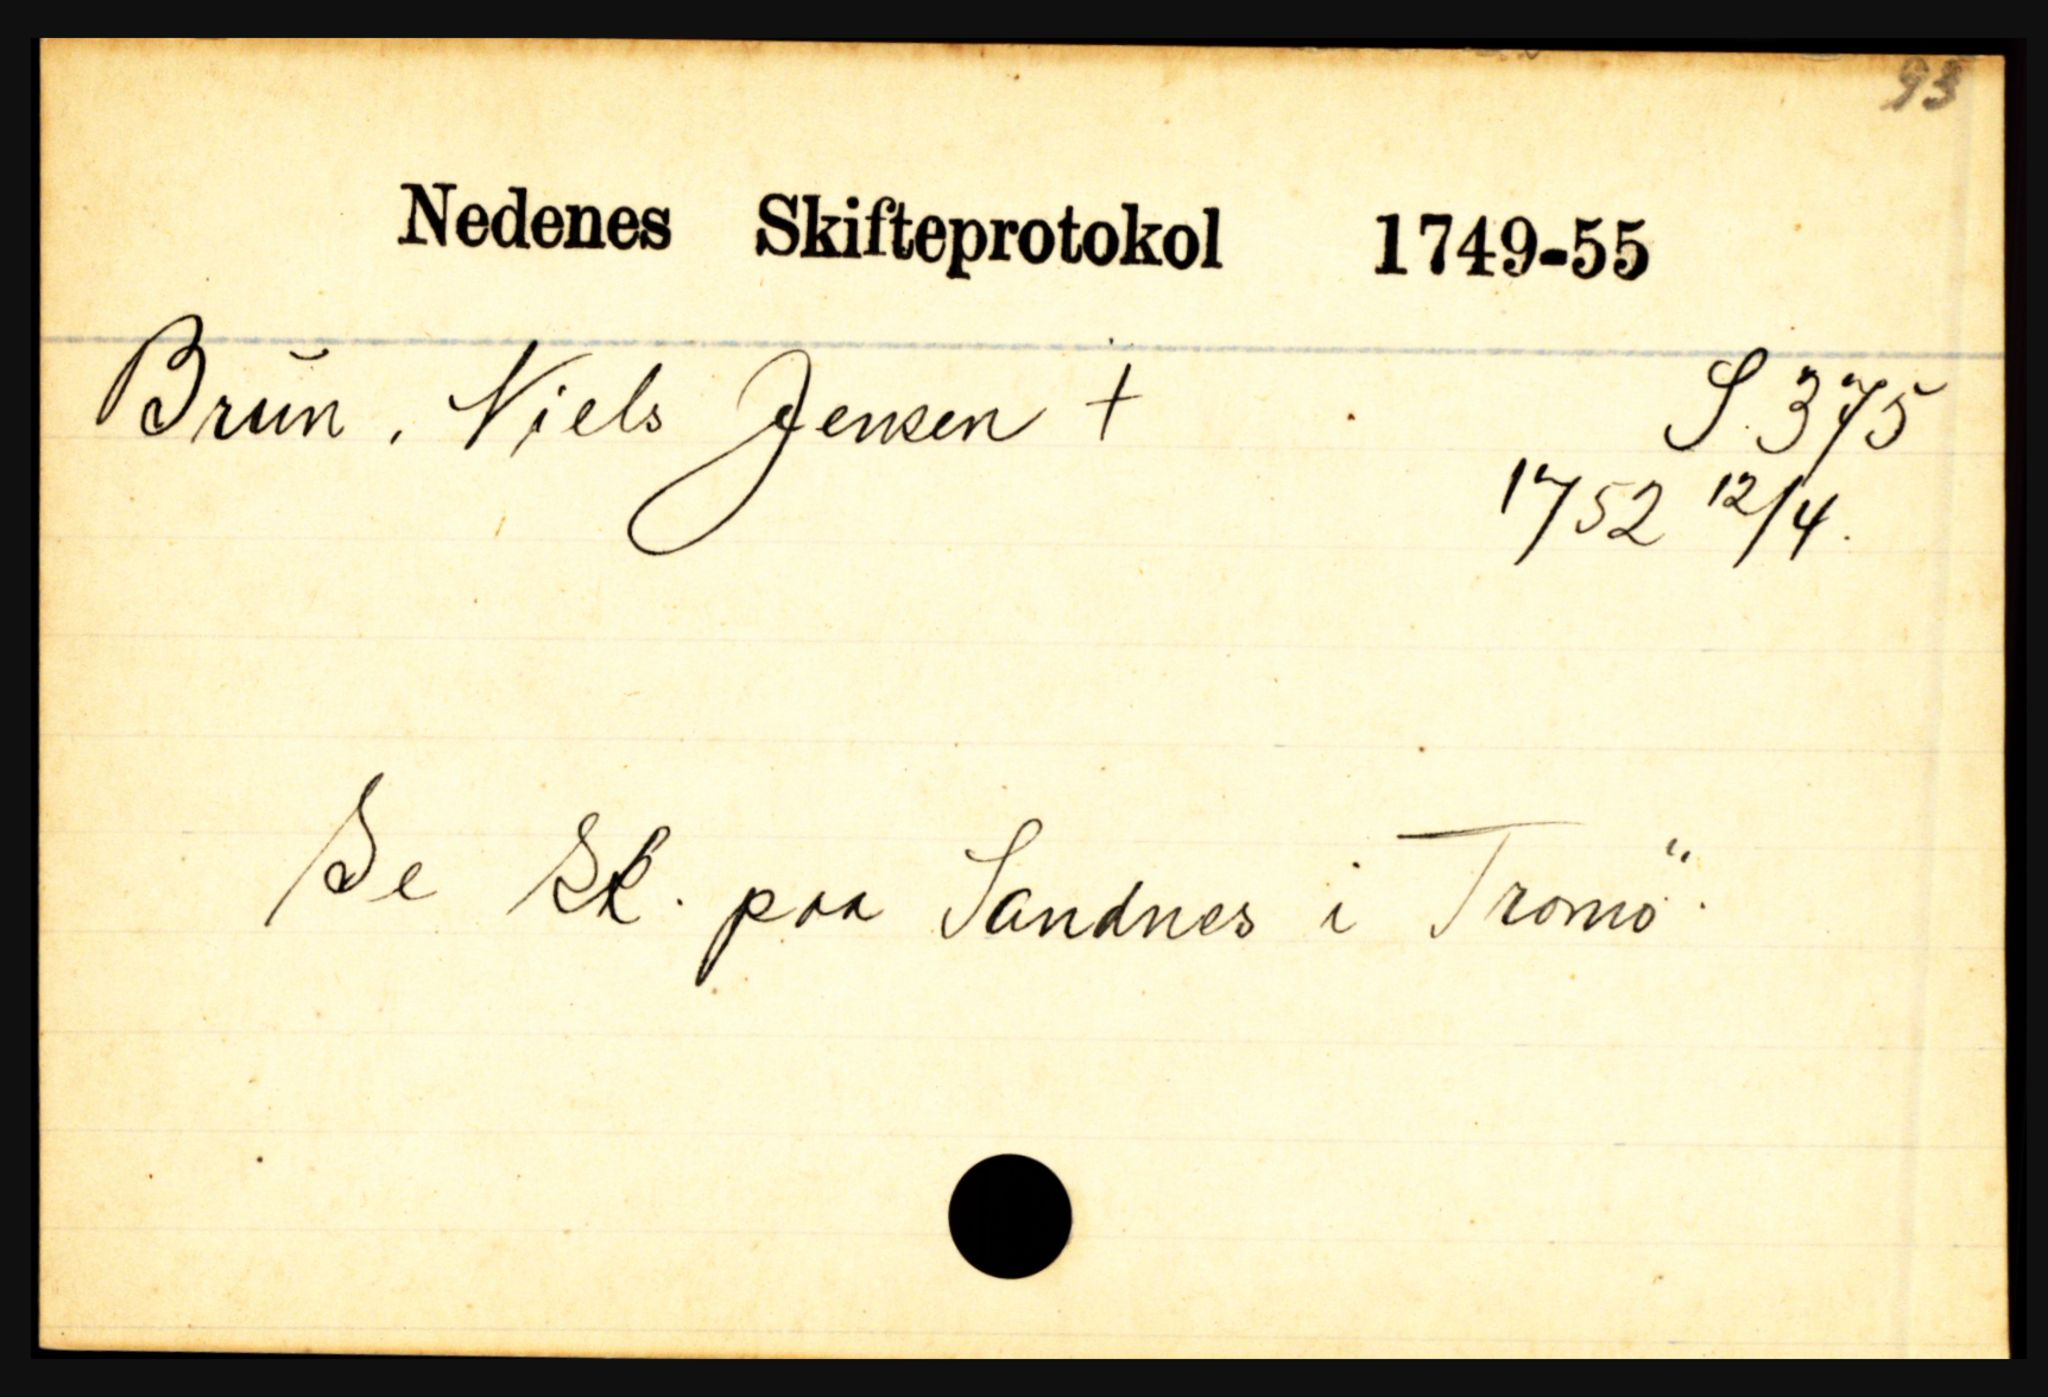 93
Nedenes Skifteprotokol 1749-55
Brun, Niels Jensen † S. 375
1752 12/4.
Se Sk. paa Sandnes i Tromö.